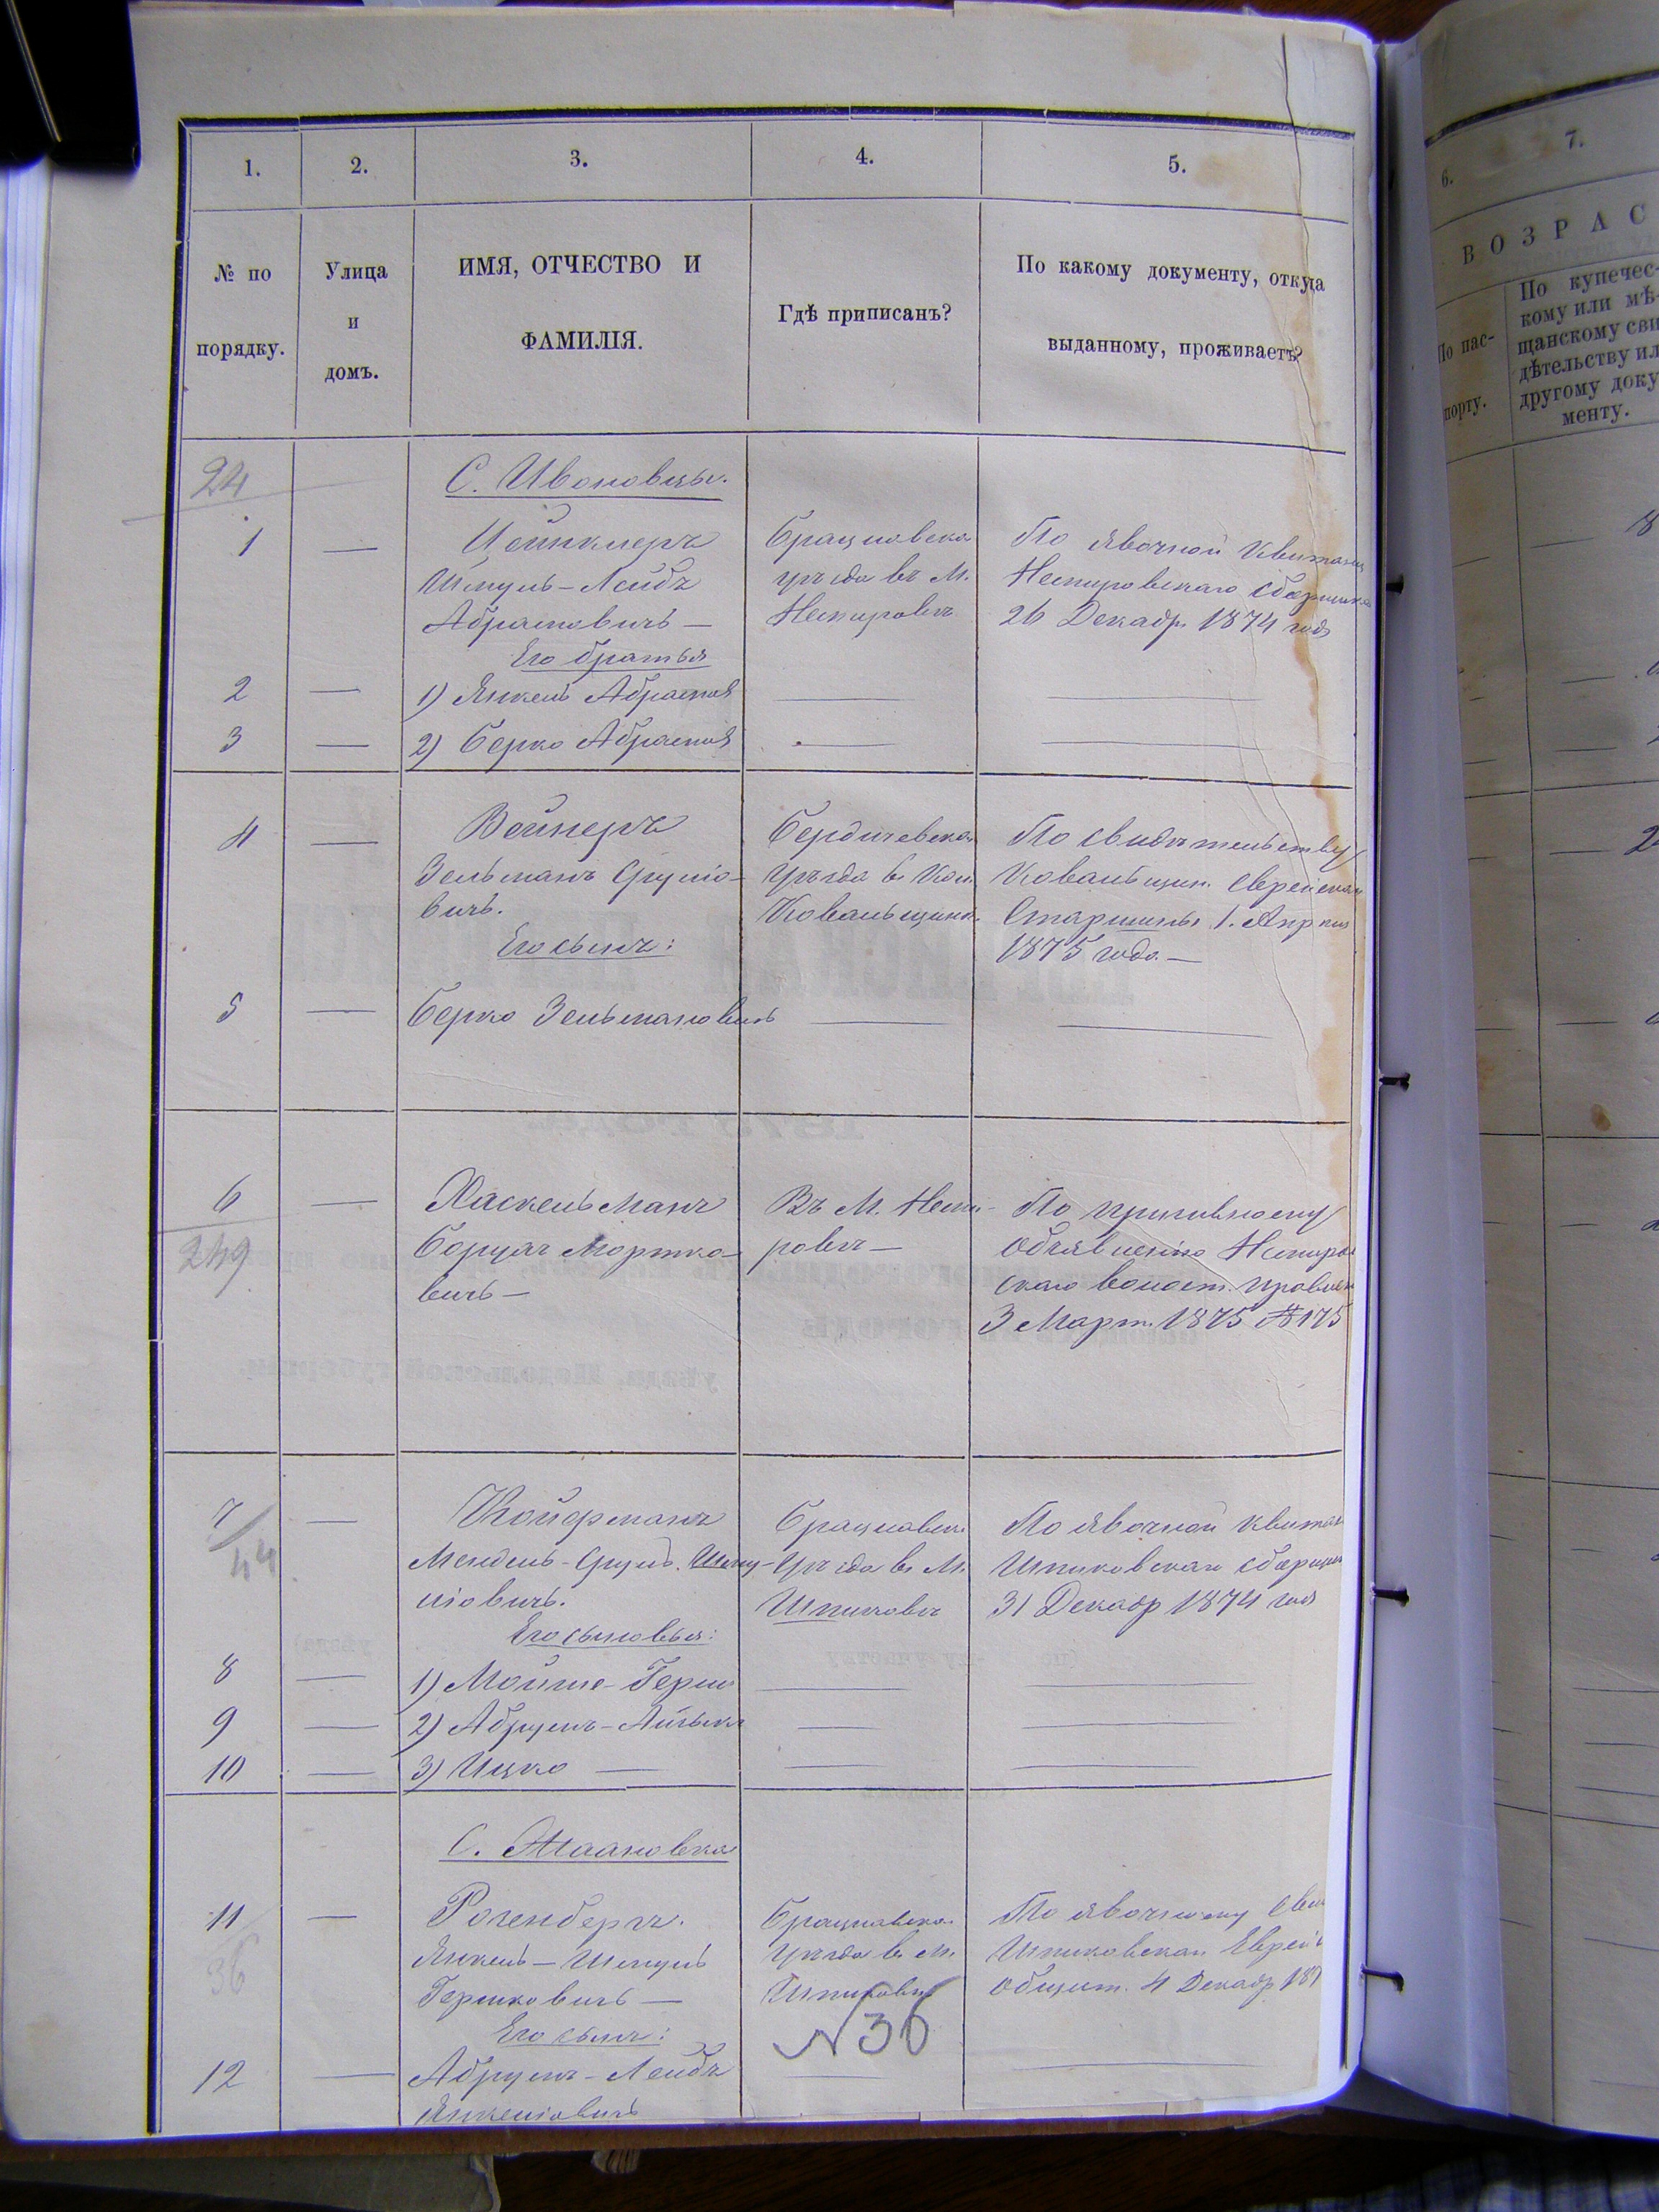 1. 2. 3. 4. 5.
№ по порядку.
Улица и домъ.
ИМЯ, ОТЧЕСТВО И ФАМИЛІЯ.
Гдѣ приписанъ?
По какому документу, откуда выданному, проживаетъ?
24
С. Ивоновцы.
1 —
Шмуль-Лейбъ
Абрамовичъ —
Его братья
Брацлавска
уѣзда въ М.
Немировѣ
По явочной квитанц
Немировскаго сборщика
26 Декабр. 1874 года
2 — 1) Янкель Абрамов — —
3 — 2) Берко Абрамов — —
4 — Войнеръ
Зельманъ Сруліо-
вичъ.
Его сынъ:
Бердичевска
уѣзда въ Кол.
Ковальщина.
По свидѣтельству
Ковальщин. Еврейска
Старшины 1. Апрѣля
1875 года —
5 — Берко Зельмановичъ — —
6 — Хаскельманъ
249
Борухъ Мортко-
вичъ —
Въ М. Неми-
ровѣ —
По призывному
объявленію Немиров
скаго волост. правлен
3 Март. 1875 № 175
7 — Койфманъ
44
Мендель-Сруль. Шму-
ліовичъ.
Его сыновья:
Брацлавск.
Уѣзда въ М.
Шпиковѣ
По явочной квитан
Шпиковскаго сборщик
31 Декабр 1874 года
8 — 1) Мойше-Герш — —
9 — 2) Абрумъ- — —
10 — 3) Ицко — — —
С.
11 — Розенбергъ.
36
Янкель-Шмуль
Гершковичъ —
Его сынъ:
Брацлавска.
уѣзда въ М.
Шпиковѣ
№ 36
По явочному Свид
Шпиковскаг Еврейс
Общест. 4 Декабр 187
12 — Абрумъ-Лейбъ — —
Янкеліовичъ
6. 7.
ВОЗРАС
По пас-
порту.
По купечес-
кому или мѣ-
щанскому сви
дѣтельству ил
другому доку
менту.